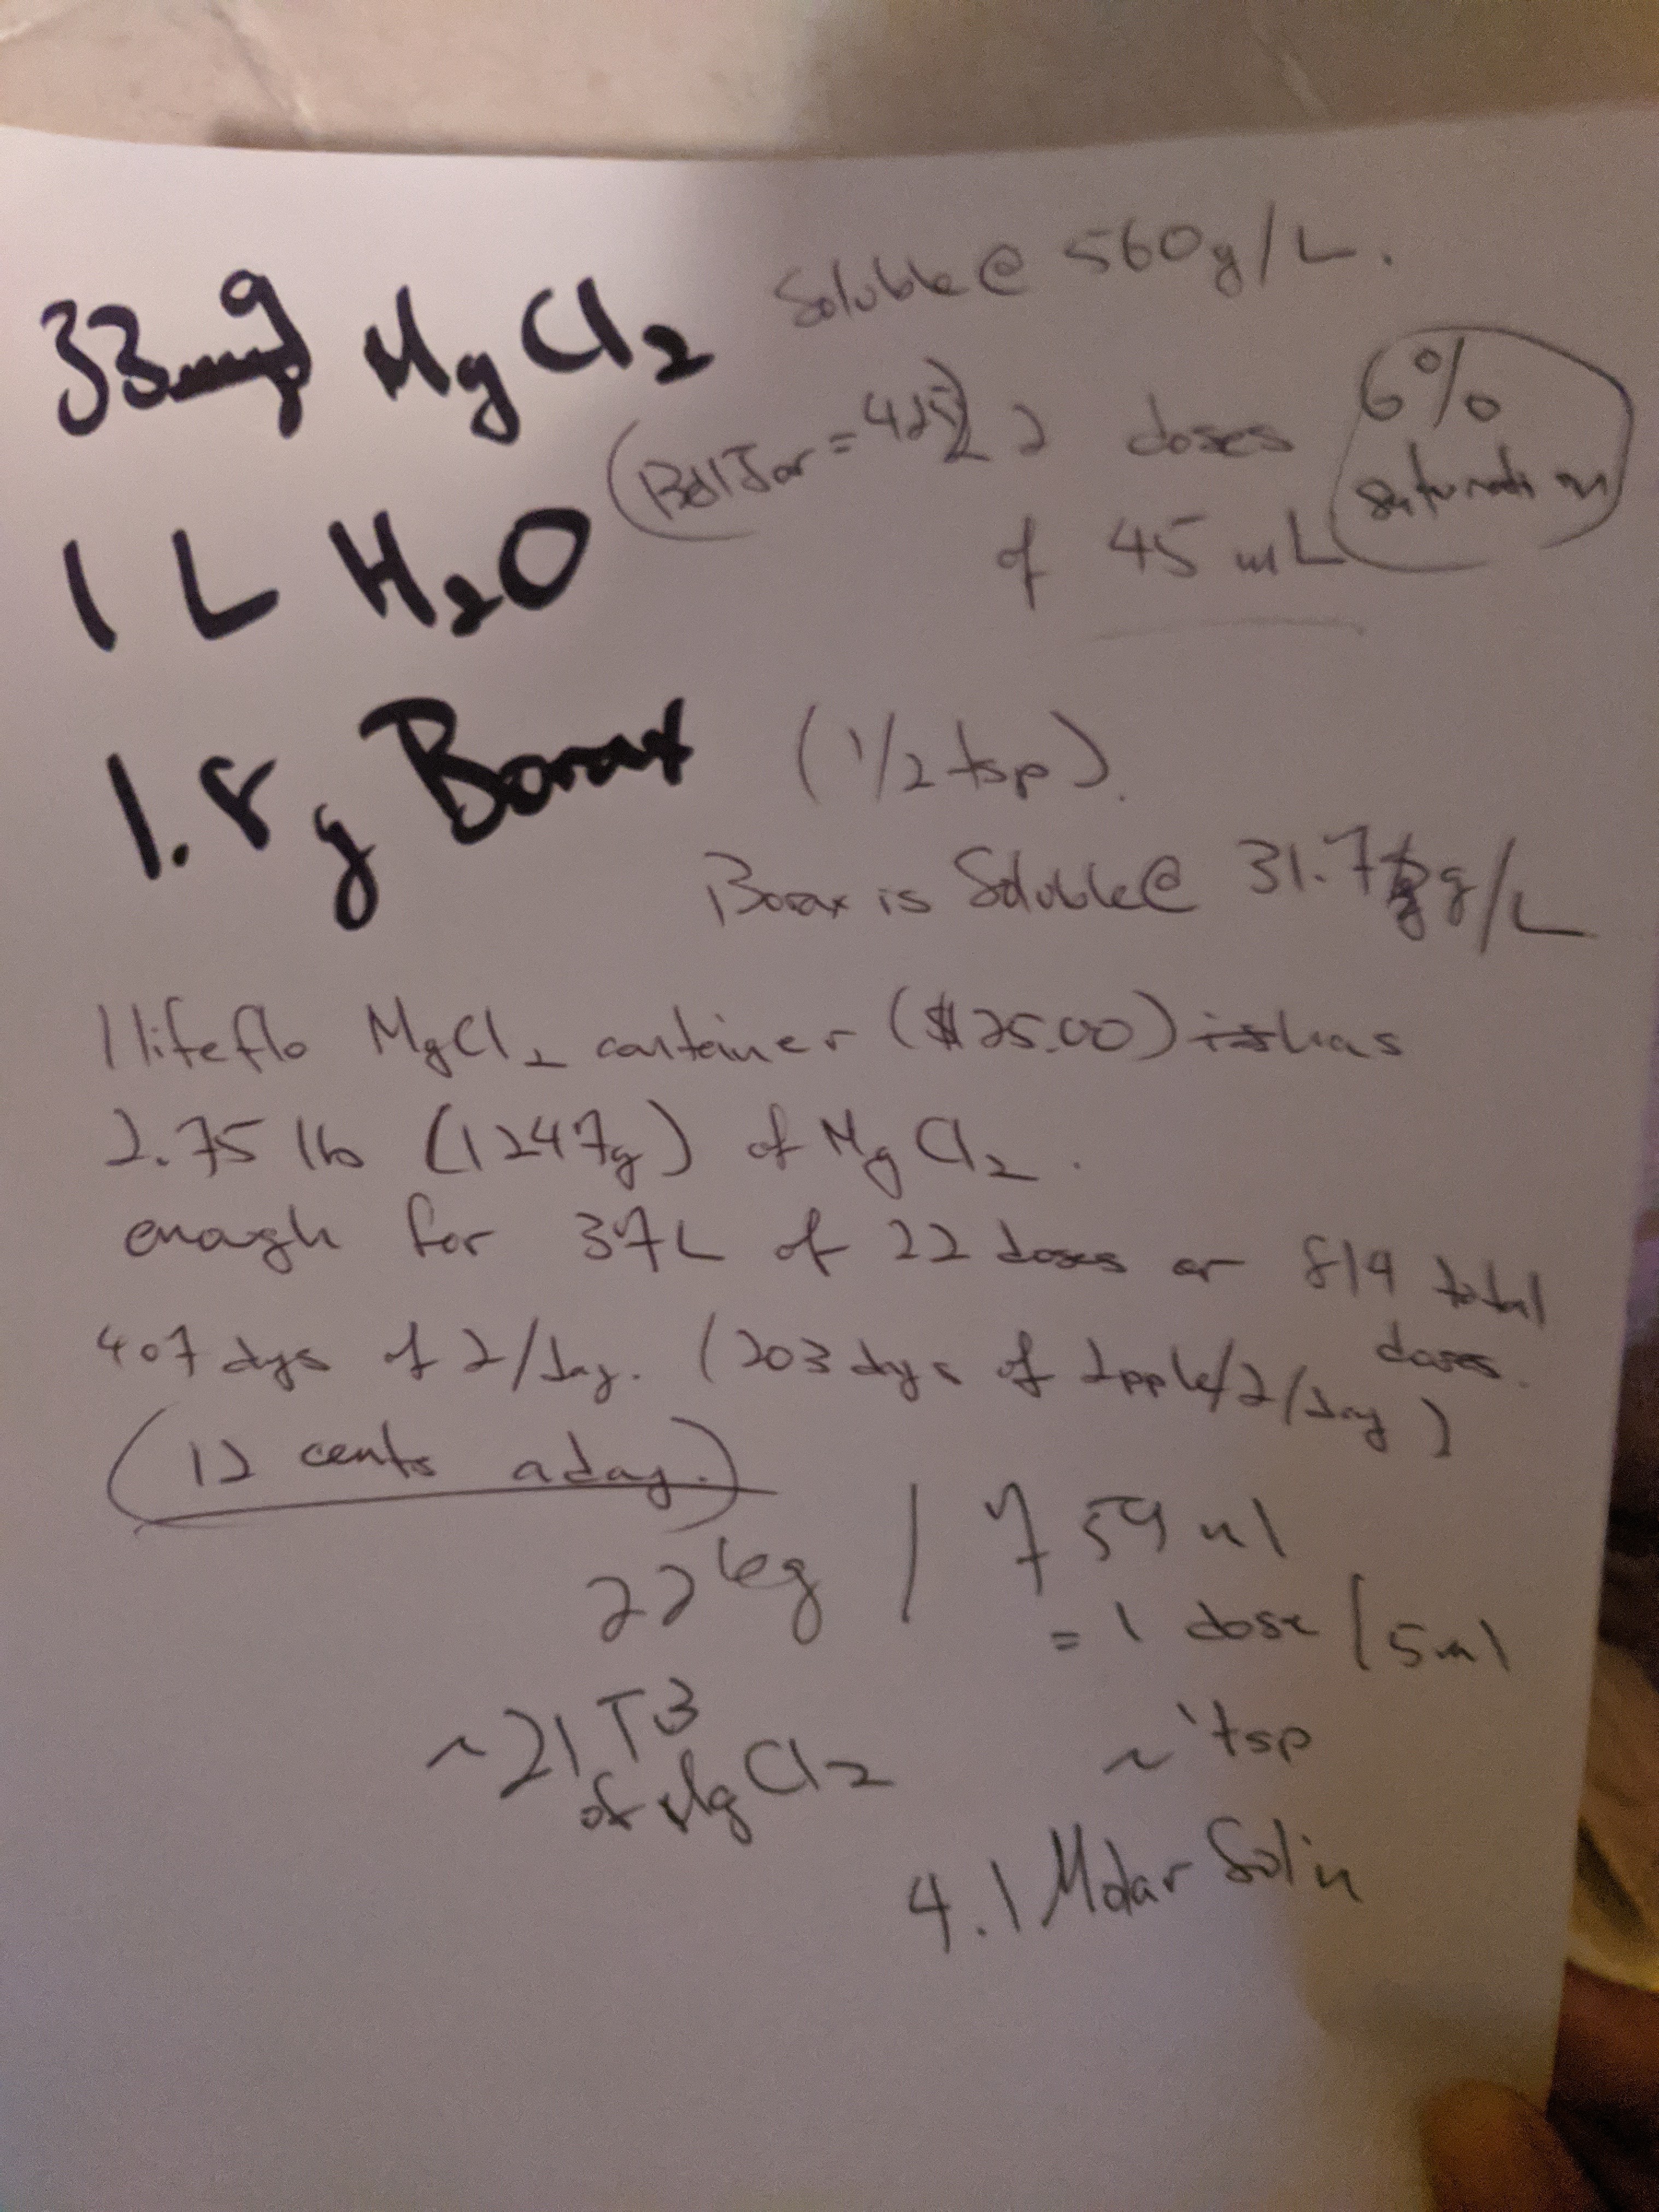 33g MgCl2 Soluble @ 560g/L.
6% saturation
(Bell Jar = 425) 22 doses
of 45 mL
1 L H2O
1.8g Borax (1/2 tsp).
Borax is Soluble @ 31.7 g/L
1 lifeflo MgCl2 container ($25.00) has
2.75 lb (1247g) of MgCl2.
enough for 37L of 22 doses or 814 total
doses.
407 dys of 2/day. (203 dys of 2pple/2/day)
(12 cents a day.)
/ 759 ml
= 1 dose / 5ml
~21 TB
of MgCl2
~ 1tsp
4.1 Molar Sol'n